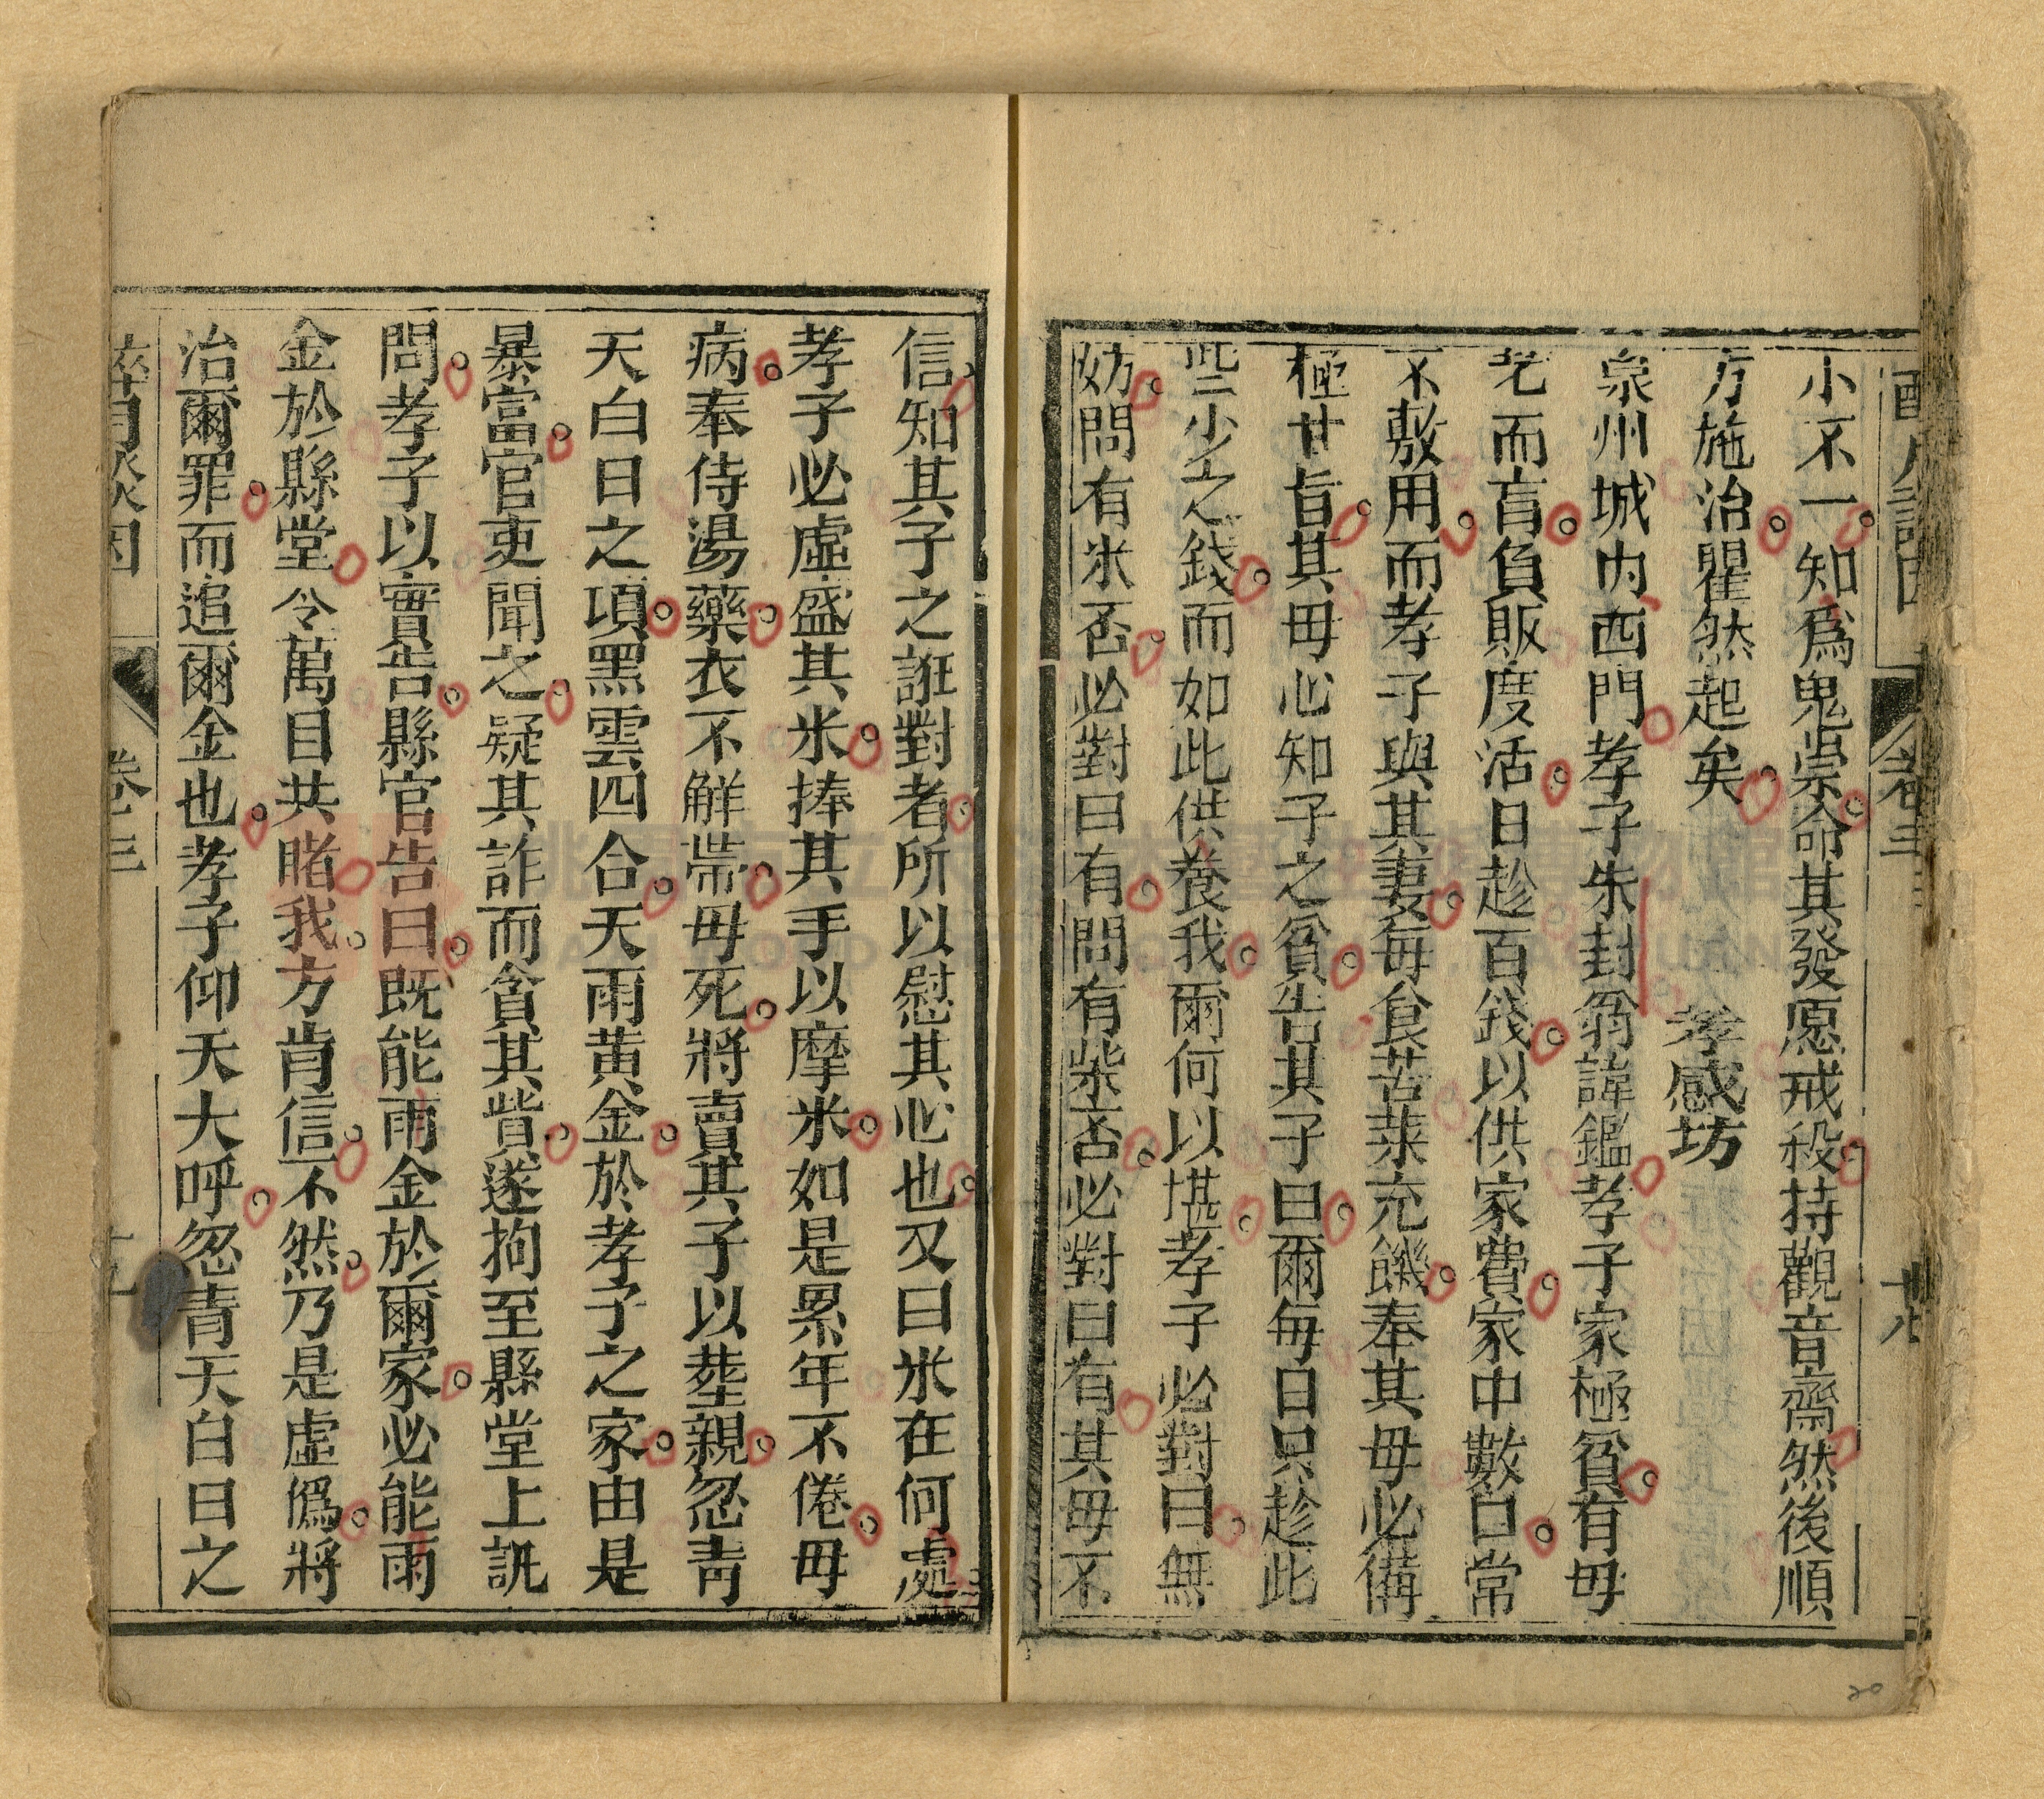 小不一知爲鬼祟命其發愿戒殺持觀音齋然後順
方施治瞿然起矣
孝感坊
泉州城内西門孝子朱封翁諱鑑孝子家極貧有毋
老而盲負販度活日趁百錢以供家費家中數口常
不敷用而孝子與其妻每食苦菜充饑奉其毋必備
極甘旨其毋心知子之貧告其子曰爾每日只趁此
些少之錢而如此供養我爾何以堪孝子必對曰無
妨問有米否必對曰有問有柴否必對曰有其毋不
信知其子之誑對者所以慰其心也又曰米在何處
孝子必虛盛其米捧其手以摩米如是累年不倦毋
病奉侍湯藥衣不解帶毋死將賣其子以塟親忽青
天白日之項黑雲四合天雨黃金於孝子之家由是
暴富官吏聞之疑其詐而貪其貲遂拘至縣堂上訊
問孝子以實告縣官告曰既能雨金於爾家必能雨
金於縣堂令萬目共睹我方肯信不然乃是虛僞將
治爾罪而追爾金也孝子仰天大呼忽青天白日之
卷三